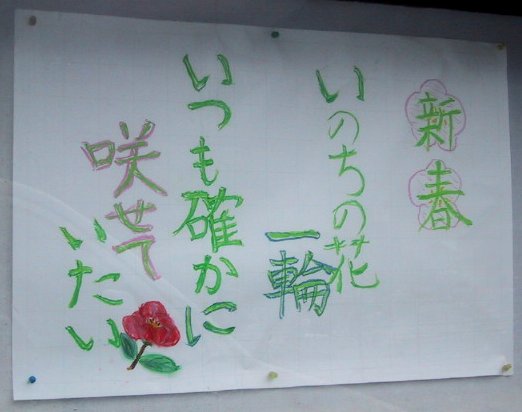 新春
いのちの花
一輪
いつも確かに
咲せて
いたい